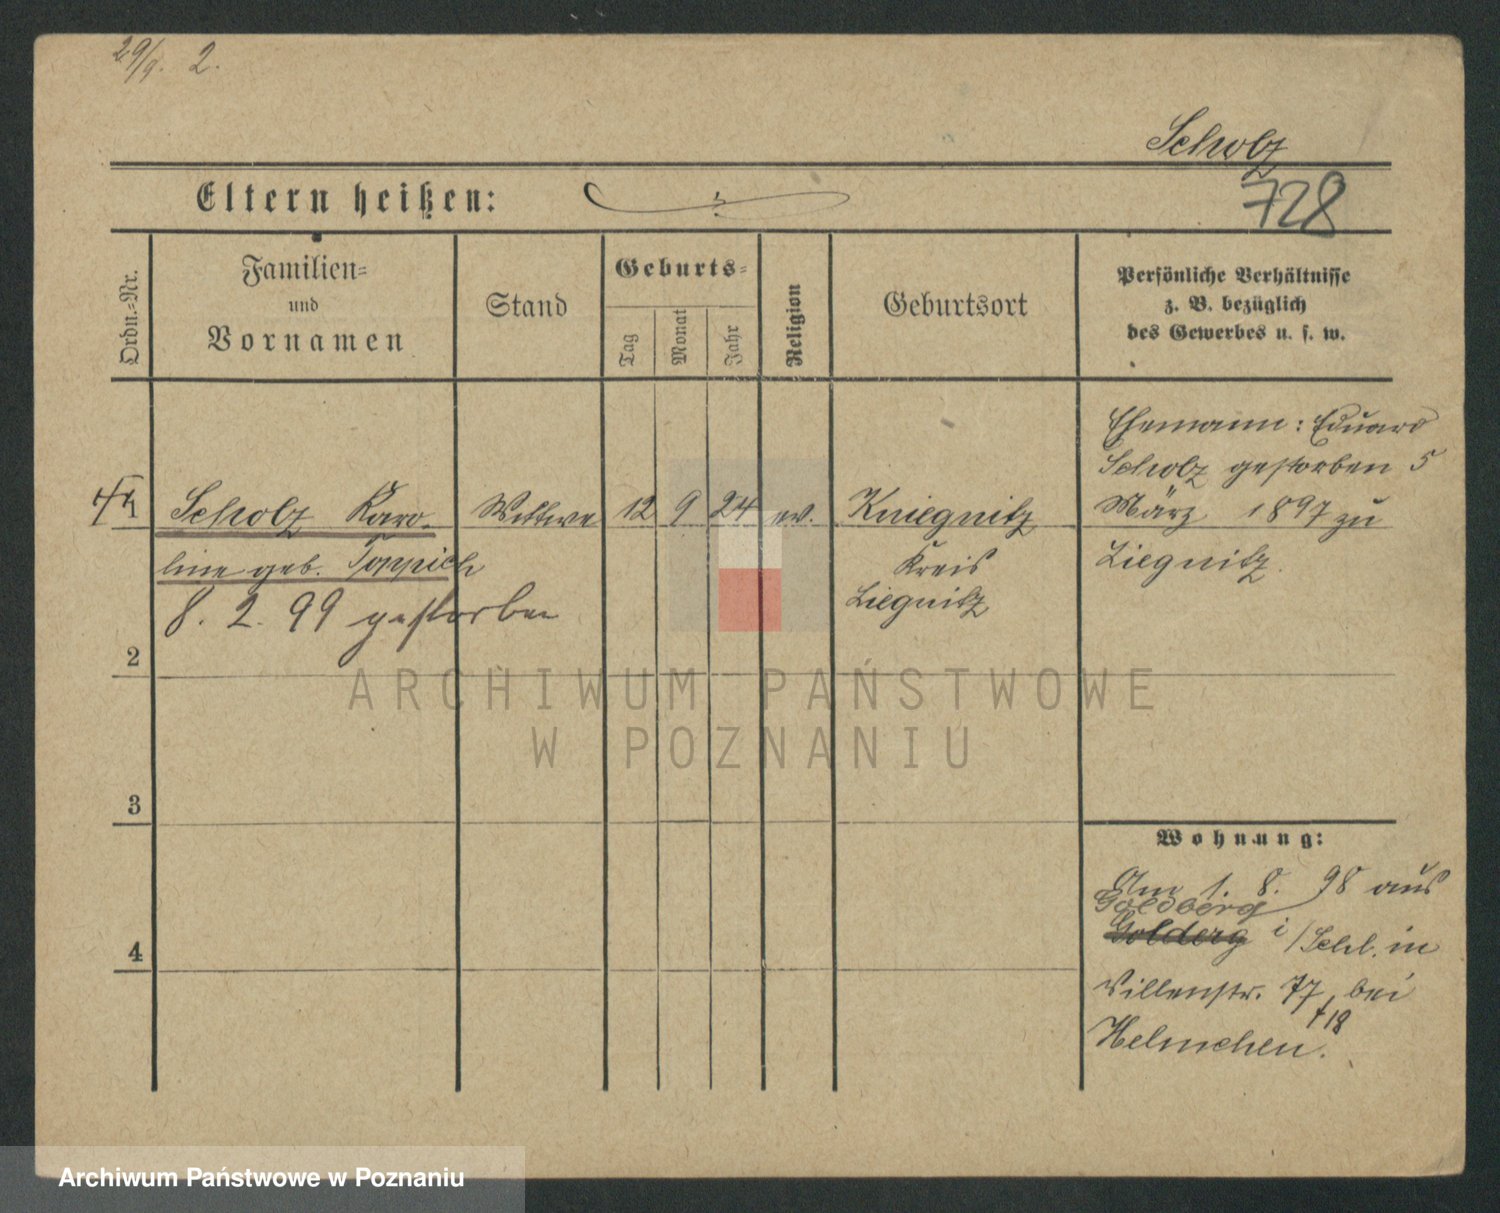 29/9. 2.
Scholz
Eltern heißen:
728
Ordn.-Nr.
Familien-
und
Vornamen
Stand
Geburts-
Tag
Monat
Jahr
Religion
Geburtsort
Persönliche Verhältnisse
z. B. bezüglich
des Gewerbes u. s. w.
Ehemann: Eduard
Scholz gestorben 5
März 1897 zu
Liegnitz.
1
Scholz Karo-
line geb. Toppich
8. 2. 99 gestorben
Wittwe
12 9 24 ev.
Kniegnitz
Kreis
Liegnitz
2
3
4
Wohnung:
Am 1. 8. 98 aus
Goldberg
Golderg i/Schl. in
Villenstr. 77, bei
Helmchen.
†18
ARCHIWUM PAŃSTWOWE
W POZNANIU
Archiwum Państwowe w Poznaniu